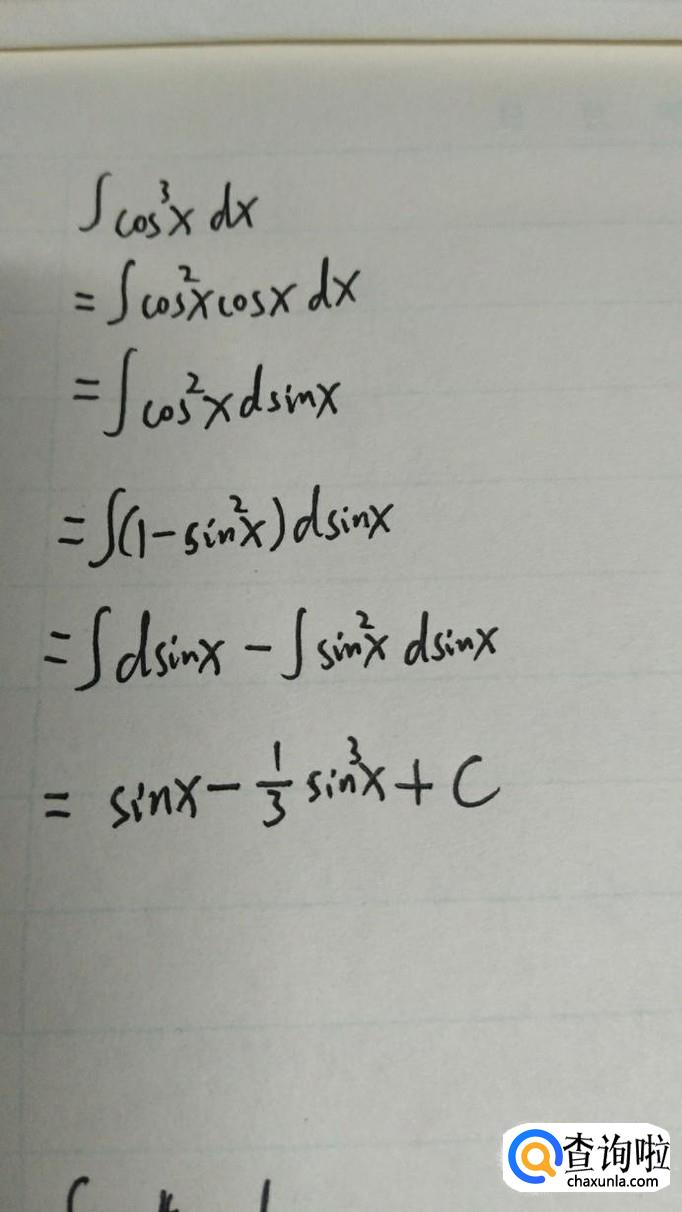 ∫cos³x dx
= ∫cos²x cosx dx
= ∫cos²x dsinx
= ∫(1-sin²x) dsinx
= ∫dsinx - ∫sin²x dsinx
= sinx - 1/3 sin³x + C
查询啦
chaxunla.com